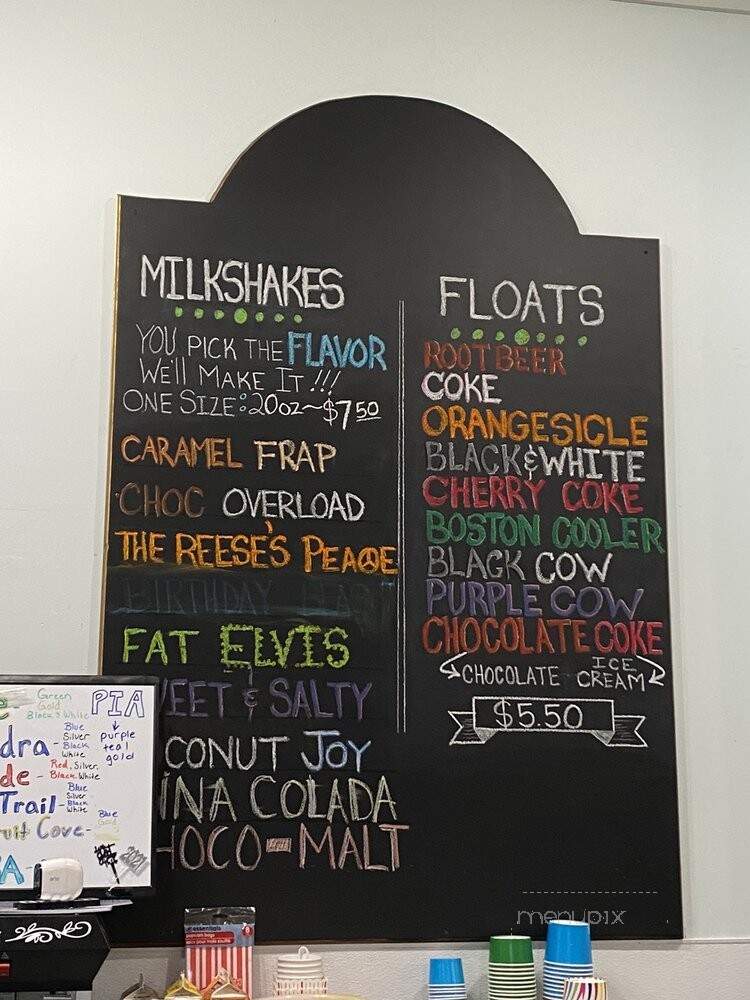 MILKSHAKES
YOU PICK THE FLAVOR
WE'll MAKE IT!!!
ONE SIZE: 20oz~$7.50
CARAMEL FRAP
CHOC OVERLOAD
THE REESE'S PEACE
BIRTHDAY
FAT ELVIS
EET & SALTY
CONUT JOY
INA COLADA
HOCO-MALT
FLOATS
ROOT BEER
COKE
ORANGESICLE
BLACK & WHITE
CHERRY COKE
BOSTON COOLER
BLACK COW
PURPLE COW
CHOCOLATE COKE
CHOCOLATE ICE CREAM
$5.50
Green
Gold
Black & White
PIA
purple
teal
gold
dra - Blue
Silver
Black
White
de - Red, Silver,
Black, White
Trail - Blue
Silver
Black
White
uit Cove - Blue
Gold
A -
2021
essentials
menupix